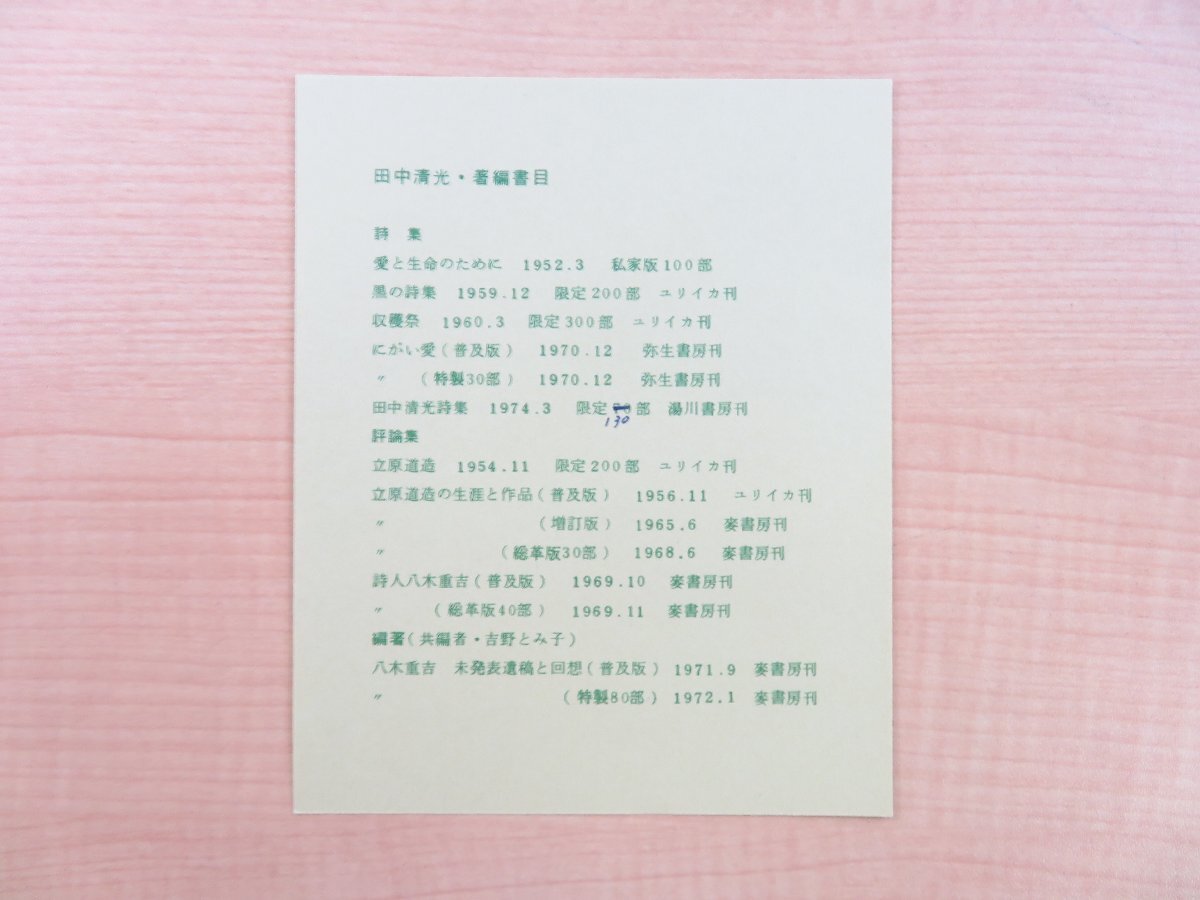 田中清光・著編書目
詩　集
愛と生命のために　1952.3　私家版100部
黒の詩集　1959.12　限定200部　ユリイカ刊
収穫祭　1960.3　限定300部　ユリイカ刊
にがい愛(普及版)　1970.12　弥生書房刊
〃　(特製30部)　1970.12　弥生書房刊
田中清光詩集　1974.3　限定 部　湯川書房刊
130
評論集
立原道造　1954.11　限定200部　ユリイカ刊
立原道造の生涯と作品(普及版)　1956.11　ユリイカ刊
〃　(増訂版)　1965.6　麥書房刊
〃　(総革版30部)　1968.6　麥書房刊
詩人八木重吉(普及版)　1969.10　麥書房刊
〃　(総革版40部)　1969.11　麥書房刊
編著(共編者・吉野とみ子)
八木重吉　未発表遺稿と回想(普及版)　1971.9　麥書房刊
〃　(特製80部)　1972.1　麥書房刊